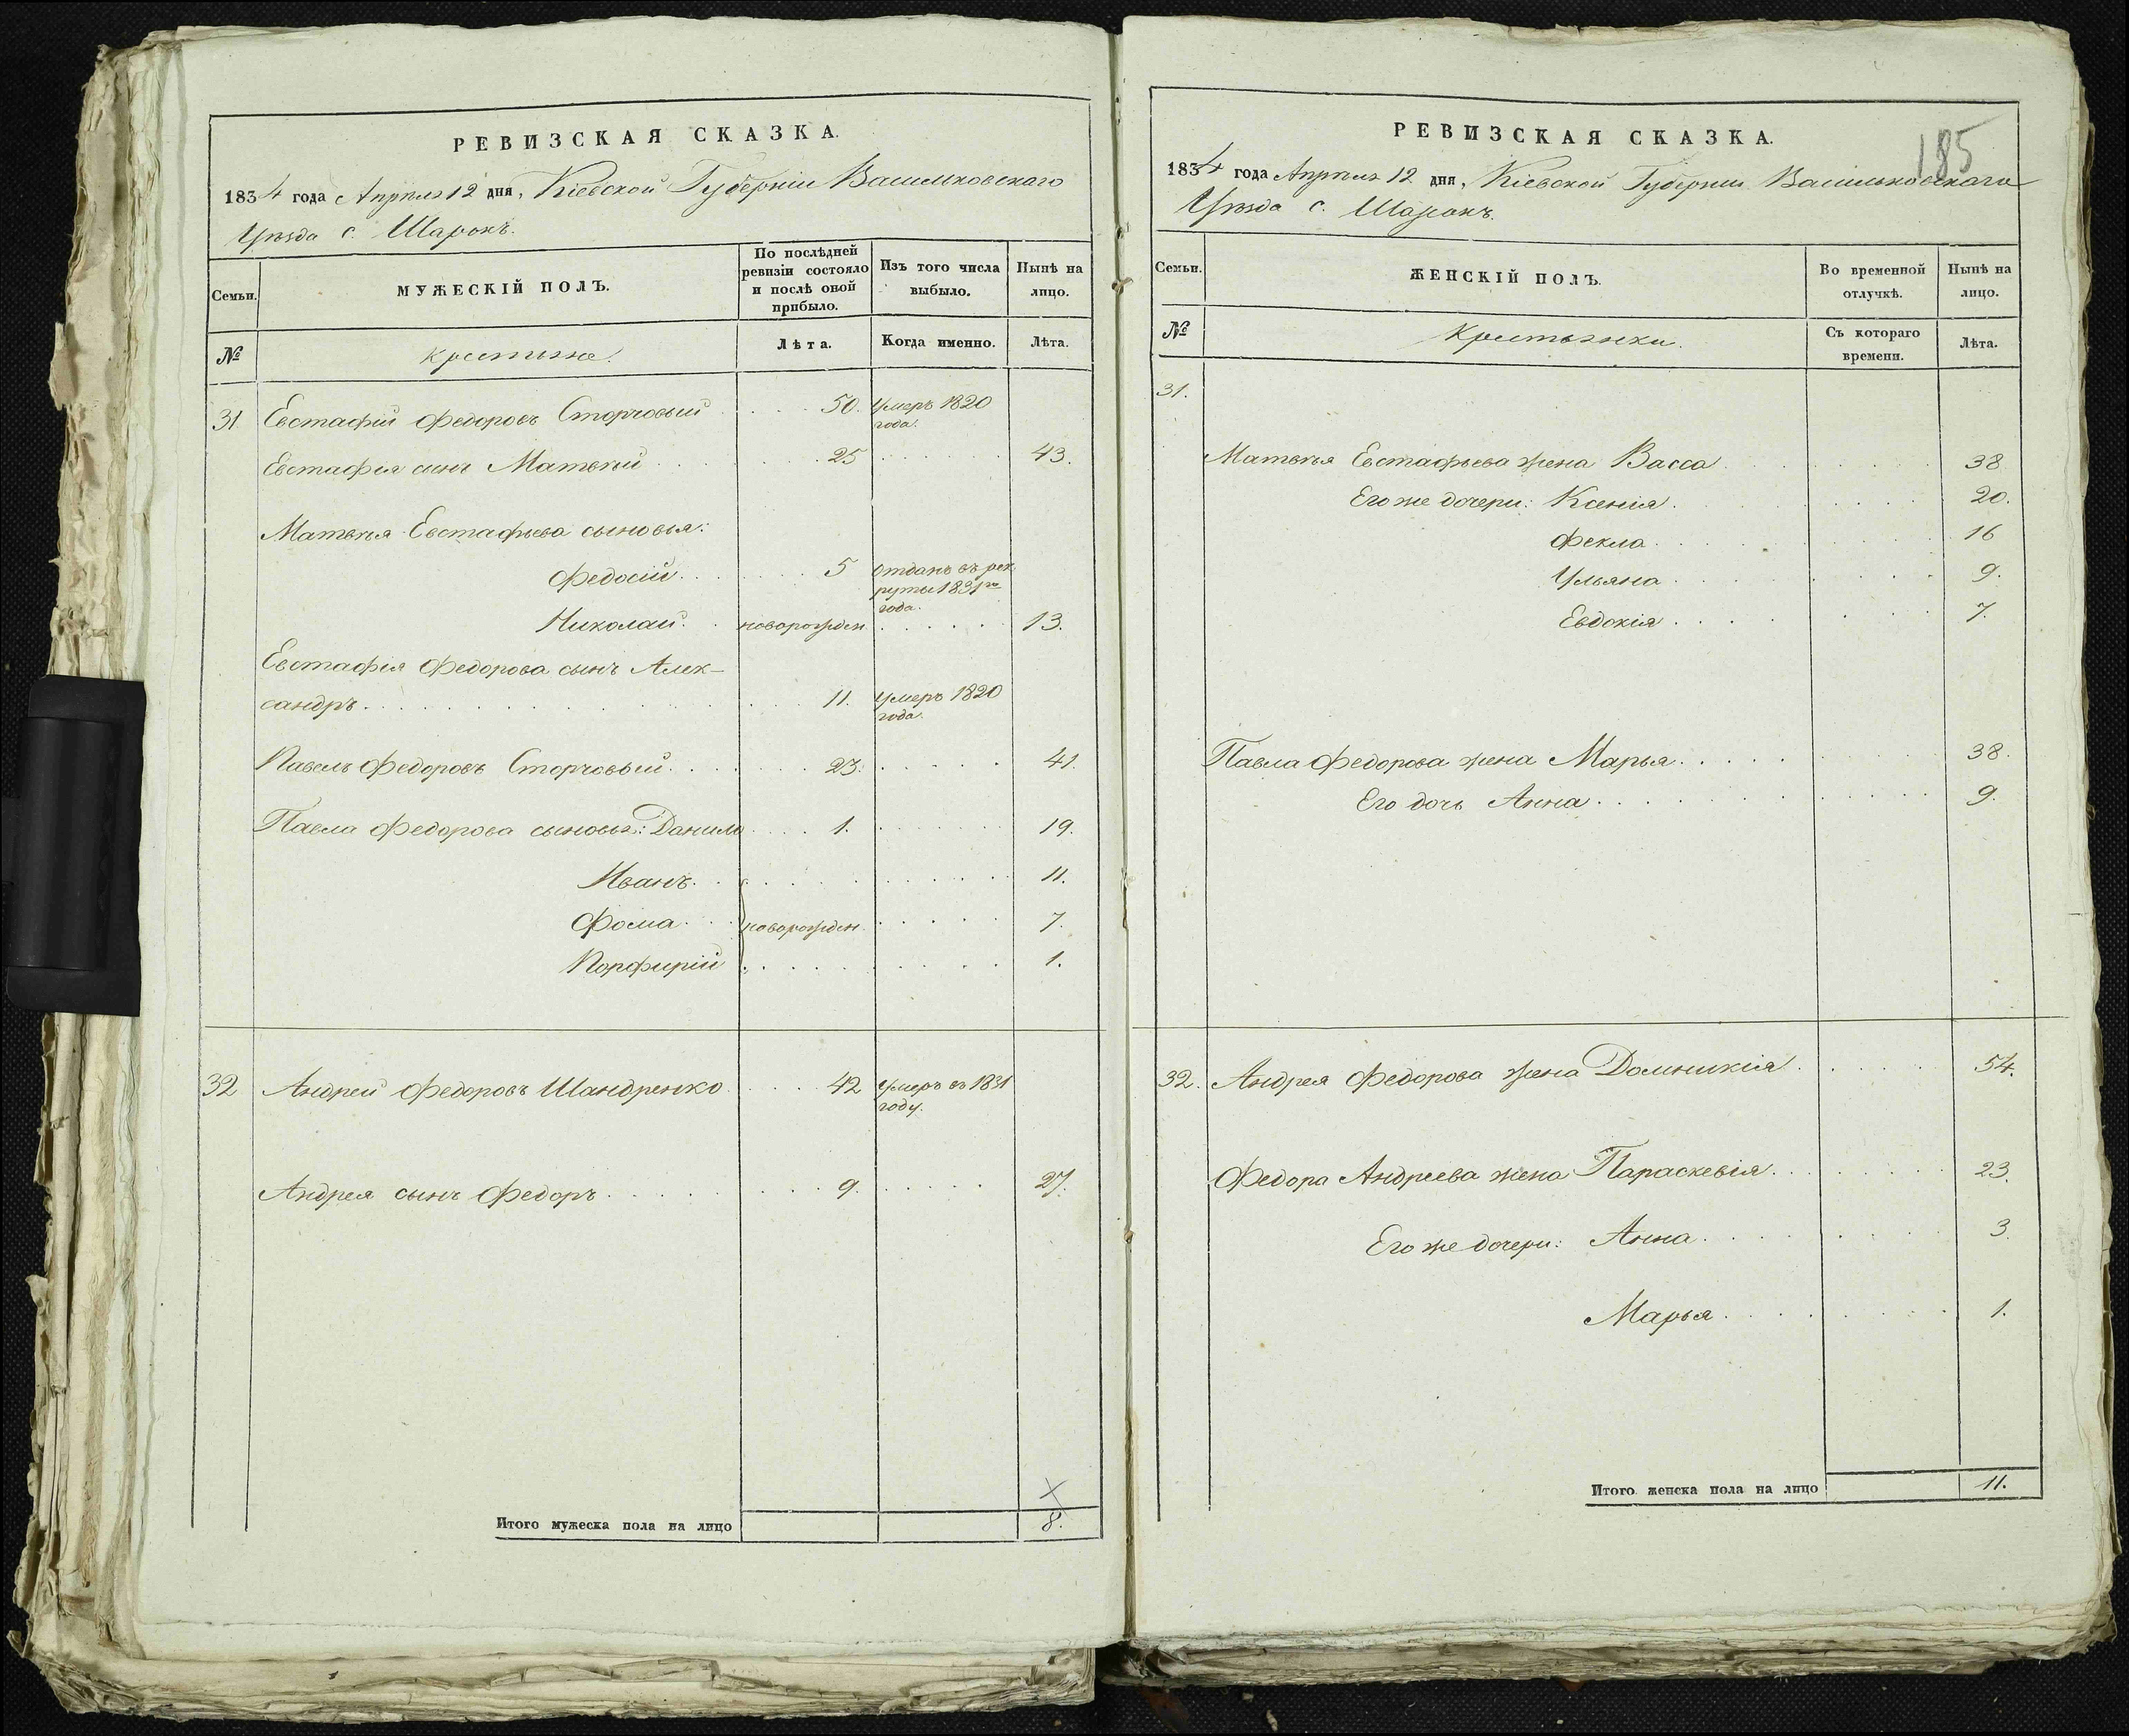 РЕВИЗСКАЯ СКАЗКА.
1834 года Апрѣля 12 дня, Кіевской Губерніи Васильковскаго
Уѣзда с. Шарокъ.
Семьи.
МУЖЕСКІЙ ПОЛЪ.
По послѣдней ревизіи состояло и послѣ оной прибыло.
Изъ того числа выбыло.
Нынѣ на лицо.
№
крестьяне.
Лѣта.
Когда именно.
Лѣта.
31. Евстафій Федоровъ Сторчовый 50. умеръ 1820 года.
Евстафія сынъ Матвѣй 25 43.
Матвѣя Евстафьева сыновья:
Федосій 5 отданъ въ рекруты 1831го года.
Николай новорожден. 13.
Евстафія Федорова сынъ Алек-
сандръ 11. умеръ 1820 года.
Павелъ Федоровъ Сторчовый 23. 41.
Павла Федорова сыновья: Данило 1. 19.
Иванъ 11.
Фома новорожден. 7.
Порфирій 1.
32 Андрей Федоровъ Шандренко 42 умеръ въ 1831 году.
Андрея сынъ Федоръ 9. 27.
Итого мужеска пола на лицо 8.
185
РЕВИЗСКАЯ СКАЗКА.
1834 года Апрѣля 12 дня, Кіевской Губерніи Васильковскаго
Уѣзда с. Шарокъ.
Семьи.
ЖЕНСКІЙ ПОЛЪ.
Во временной отлучкѣ.
Нынѣ на лицо.
№
Крестьянки.
Съ котораго времени.
Лѣта.
31.
Матвѣя Евстафьева жена Васса 38
Его же дочери: Ксенія 20.
Фекла 16
Ульяна 9.
Евдокія 7.
Павла Федорова жена Марья 38.
Его дочь Анна 9.
32. Андрея Федорова жена Домникія 54.
Федора Андреева жена Параскевія 23.
Его же дочери: Анна 3.
Марья 1.
Итого женска пола на лицо 11.